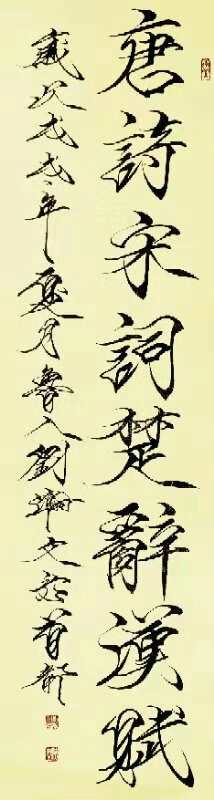 唐詩宋詞楚辭漢賦
歲次戊戌年夏月魯人劉文於首都